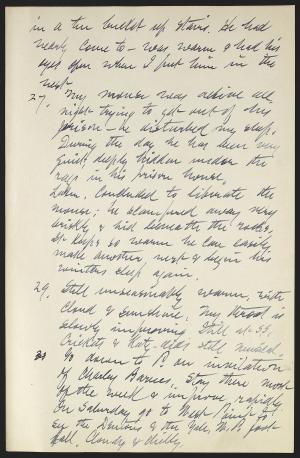 in a tin bucket up stairs. He had
nearly come to – was warm & had his
eyes open when I put him in the
nest.
27. My mouse was active all
night trying to get out of his
prison – he disturbed my sleep.
During the day he has been very
quiet deeply hidden under the
rags in his prison house.
Later. Concluded to liberate the
mouse; he scampered away very
briskly & hid beneath the rocks.
It keeps so warm he can easily
make another nest & begin his
winters sleep again.
29. Still unseasonably warm, with
cloud & sunshine. My throat is
slowly improving. Still at 55.
Crickets & Katy-dids still musical.
31 Go down to P. on invitation
of Charley Barnes. Stay there most
of the week & improve rapidly.
On Saturday go to West Point to
see the Dentons & the Yale, W. P. foot-
ball. Cloudy & chilly.